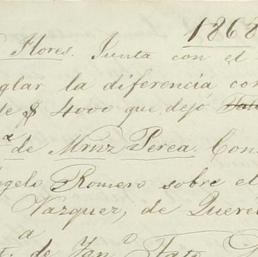 1868
Flores. Junta con el
glar la diferencia con
de $ 4000 que dejo
a de Mrnz Perea. Con
ngelo Romero sobre el
Vazquez, de Quere
a
de Jan.o